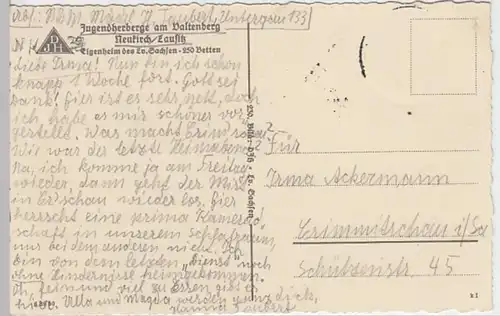 Abs.: Ndhr. Mädel H. Taubert, Untergau 133
Jugendherberge am Valtenberg
Neukirch/Lausitz
Eigenheim des Lv. Sachsen - 250 Betten
DJH
liebe Irma! Nun bin ich schon
knapp 1 Woche fort. Gott sei
Dank! Hier ist es sehr nett, doch
ich habe es mir schöner vor-
gestellt. Was macht
Wie war der letzte Heimabend?
Na, ich komme ja am Freitag
wieder, dann geht der Mist
in wieder los. Hier
herrscht eine prima Kamerad-
schaft in unserem Schlafraum,
nur bei dem anderen nicht. Ich
bin von dem letzten Dienst noch
ohne Hindernisse heimgekommen.
Oh, fein und viel zu Essen gibt es
hier. Ulla und Magda werden
Hanna Taubert
Für
Irma Ackermann
Crimmitschau i/Sa
Schützenstr. 45